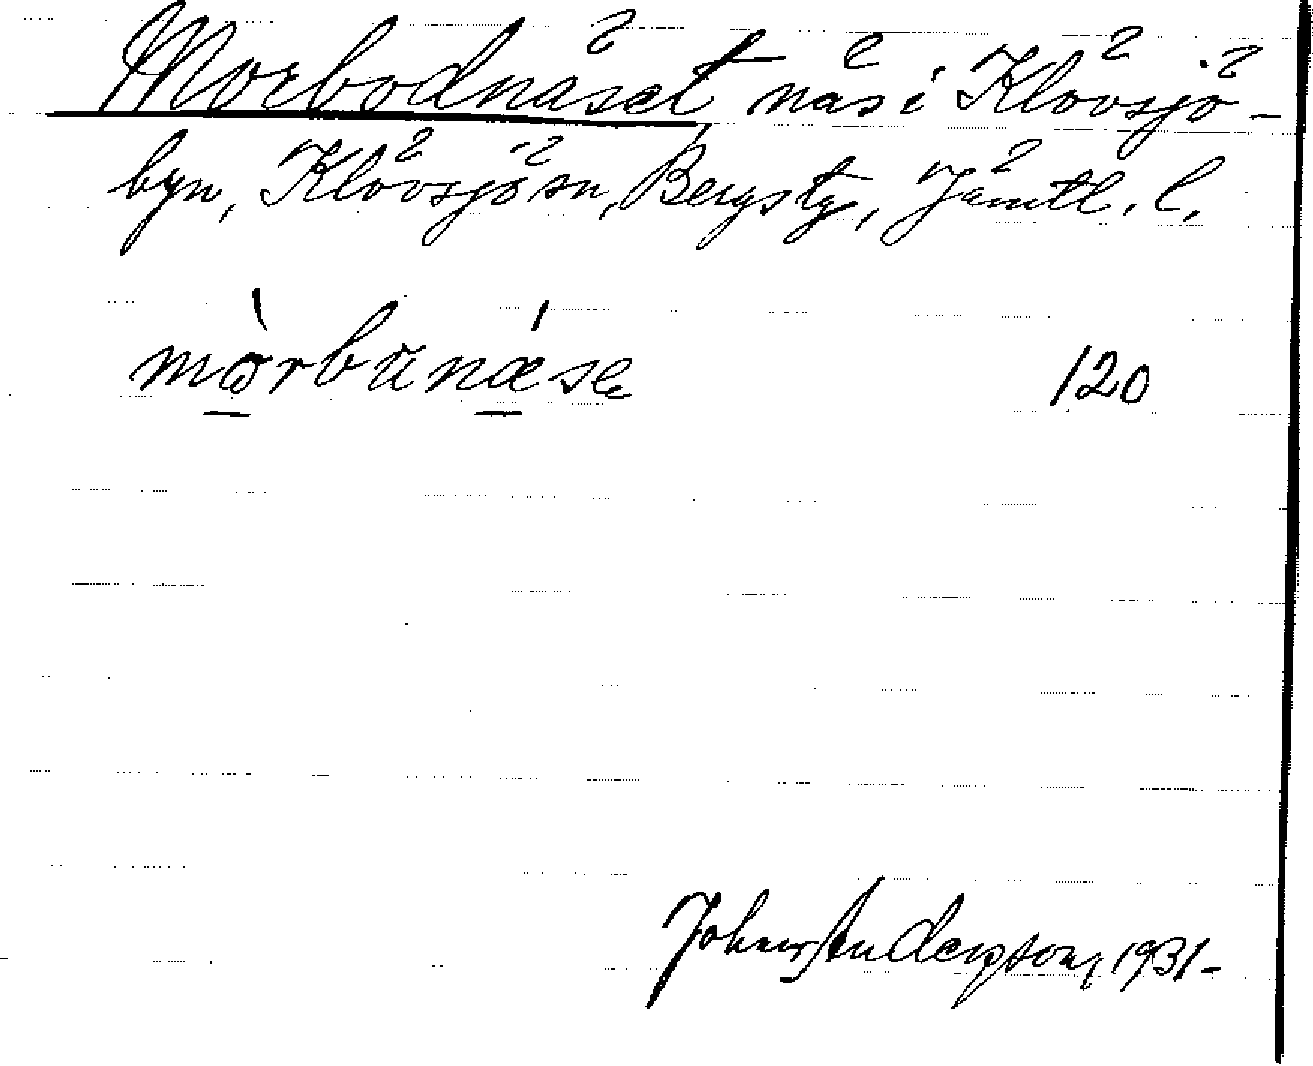 Morbodnäset näs i Klövsjö-
byn, Klövsjö sn, Bergs tg, Jämtl. l.
mòrbunǽse 120
Johns Andersson, 1931-